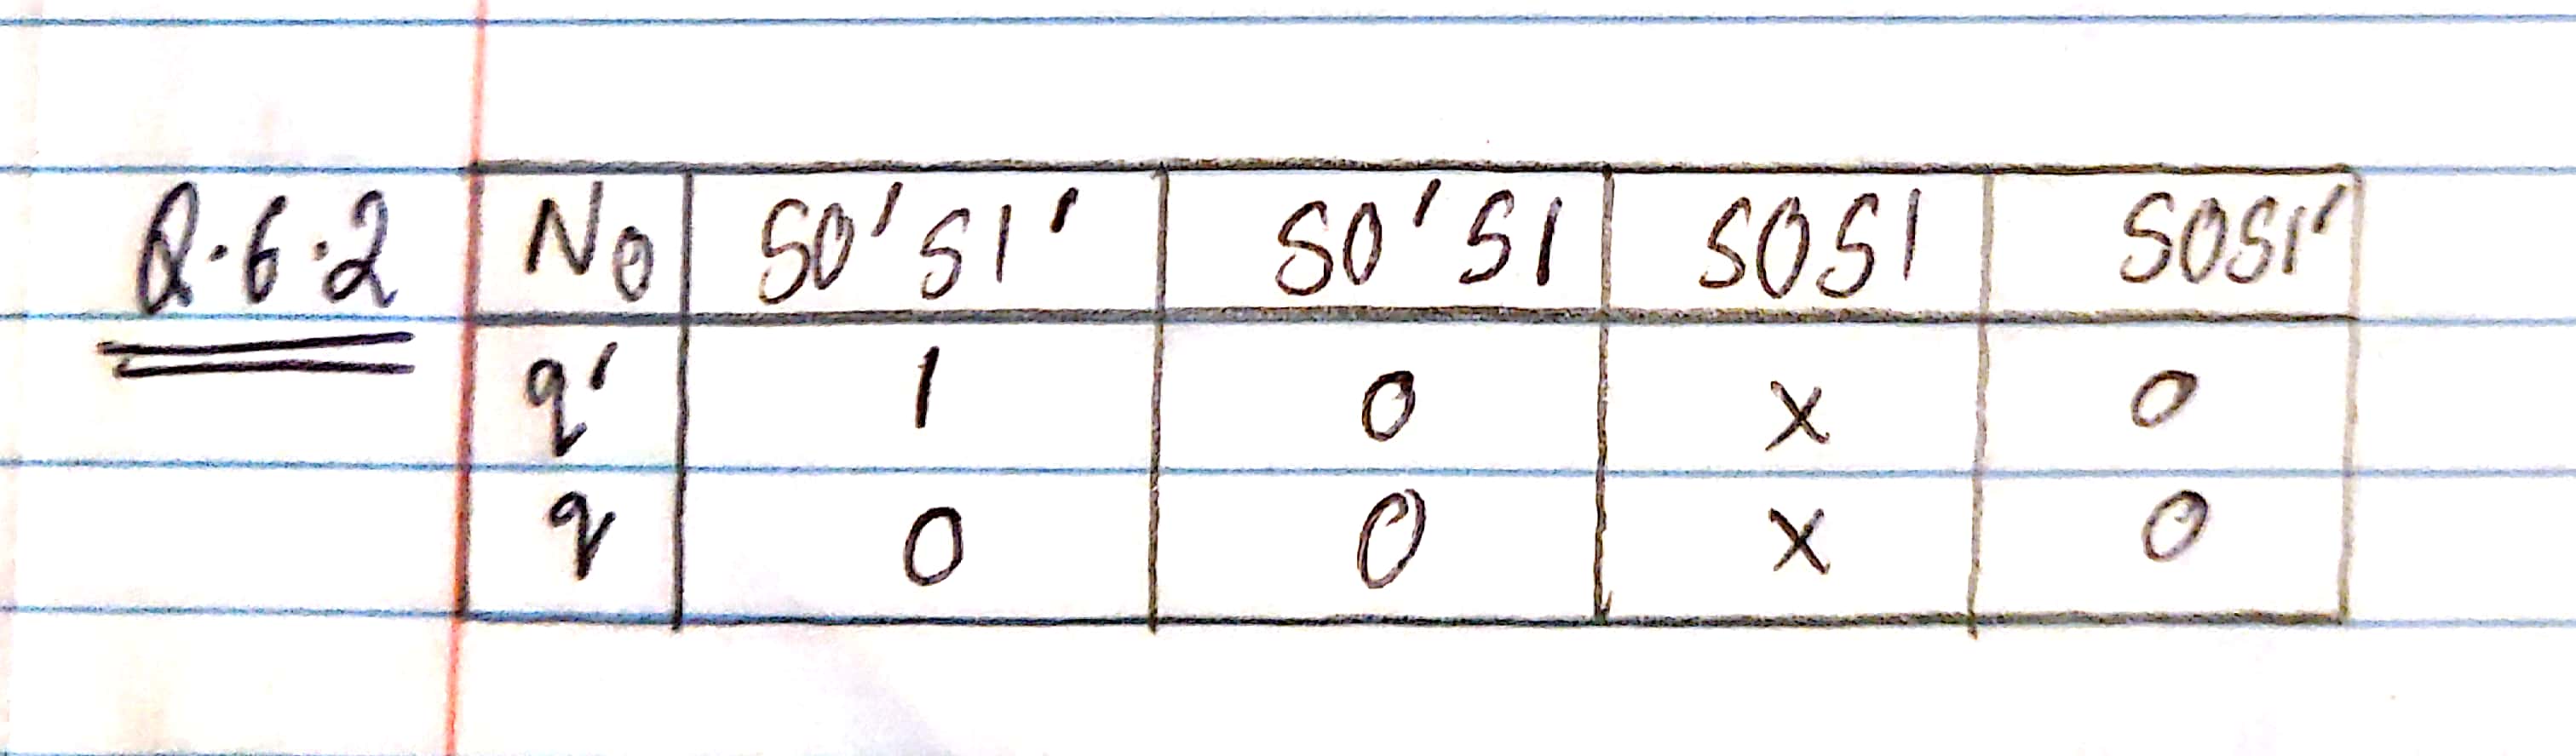 Q.6.2 No S0'S1' S0'S1 S0S1 S0S1'
q' 1 0 x 0
q 0 0 x 0